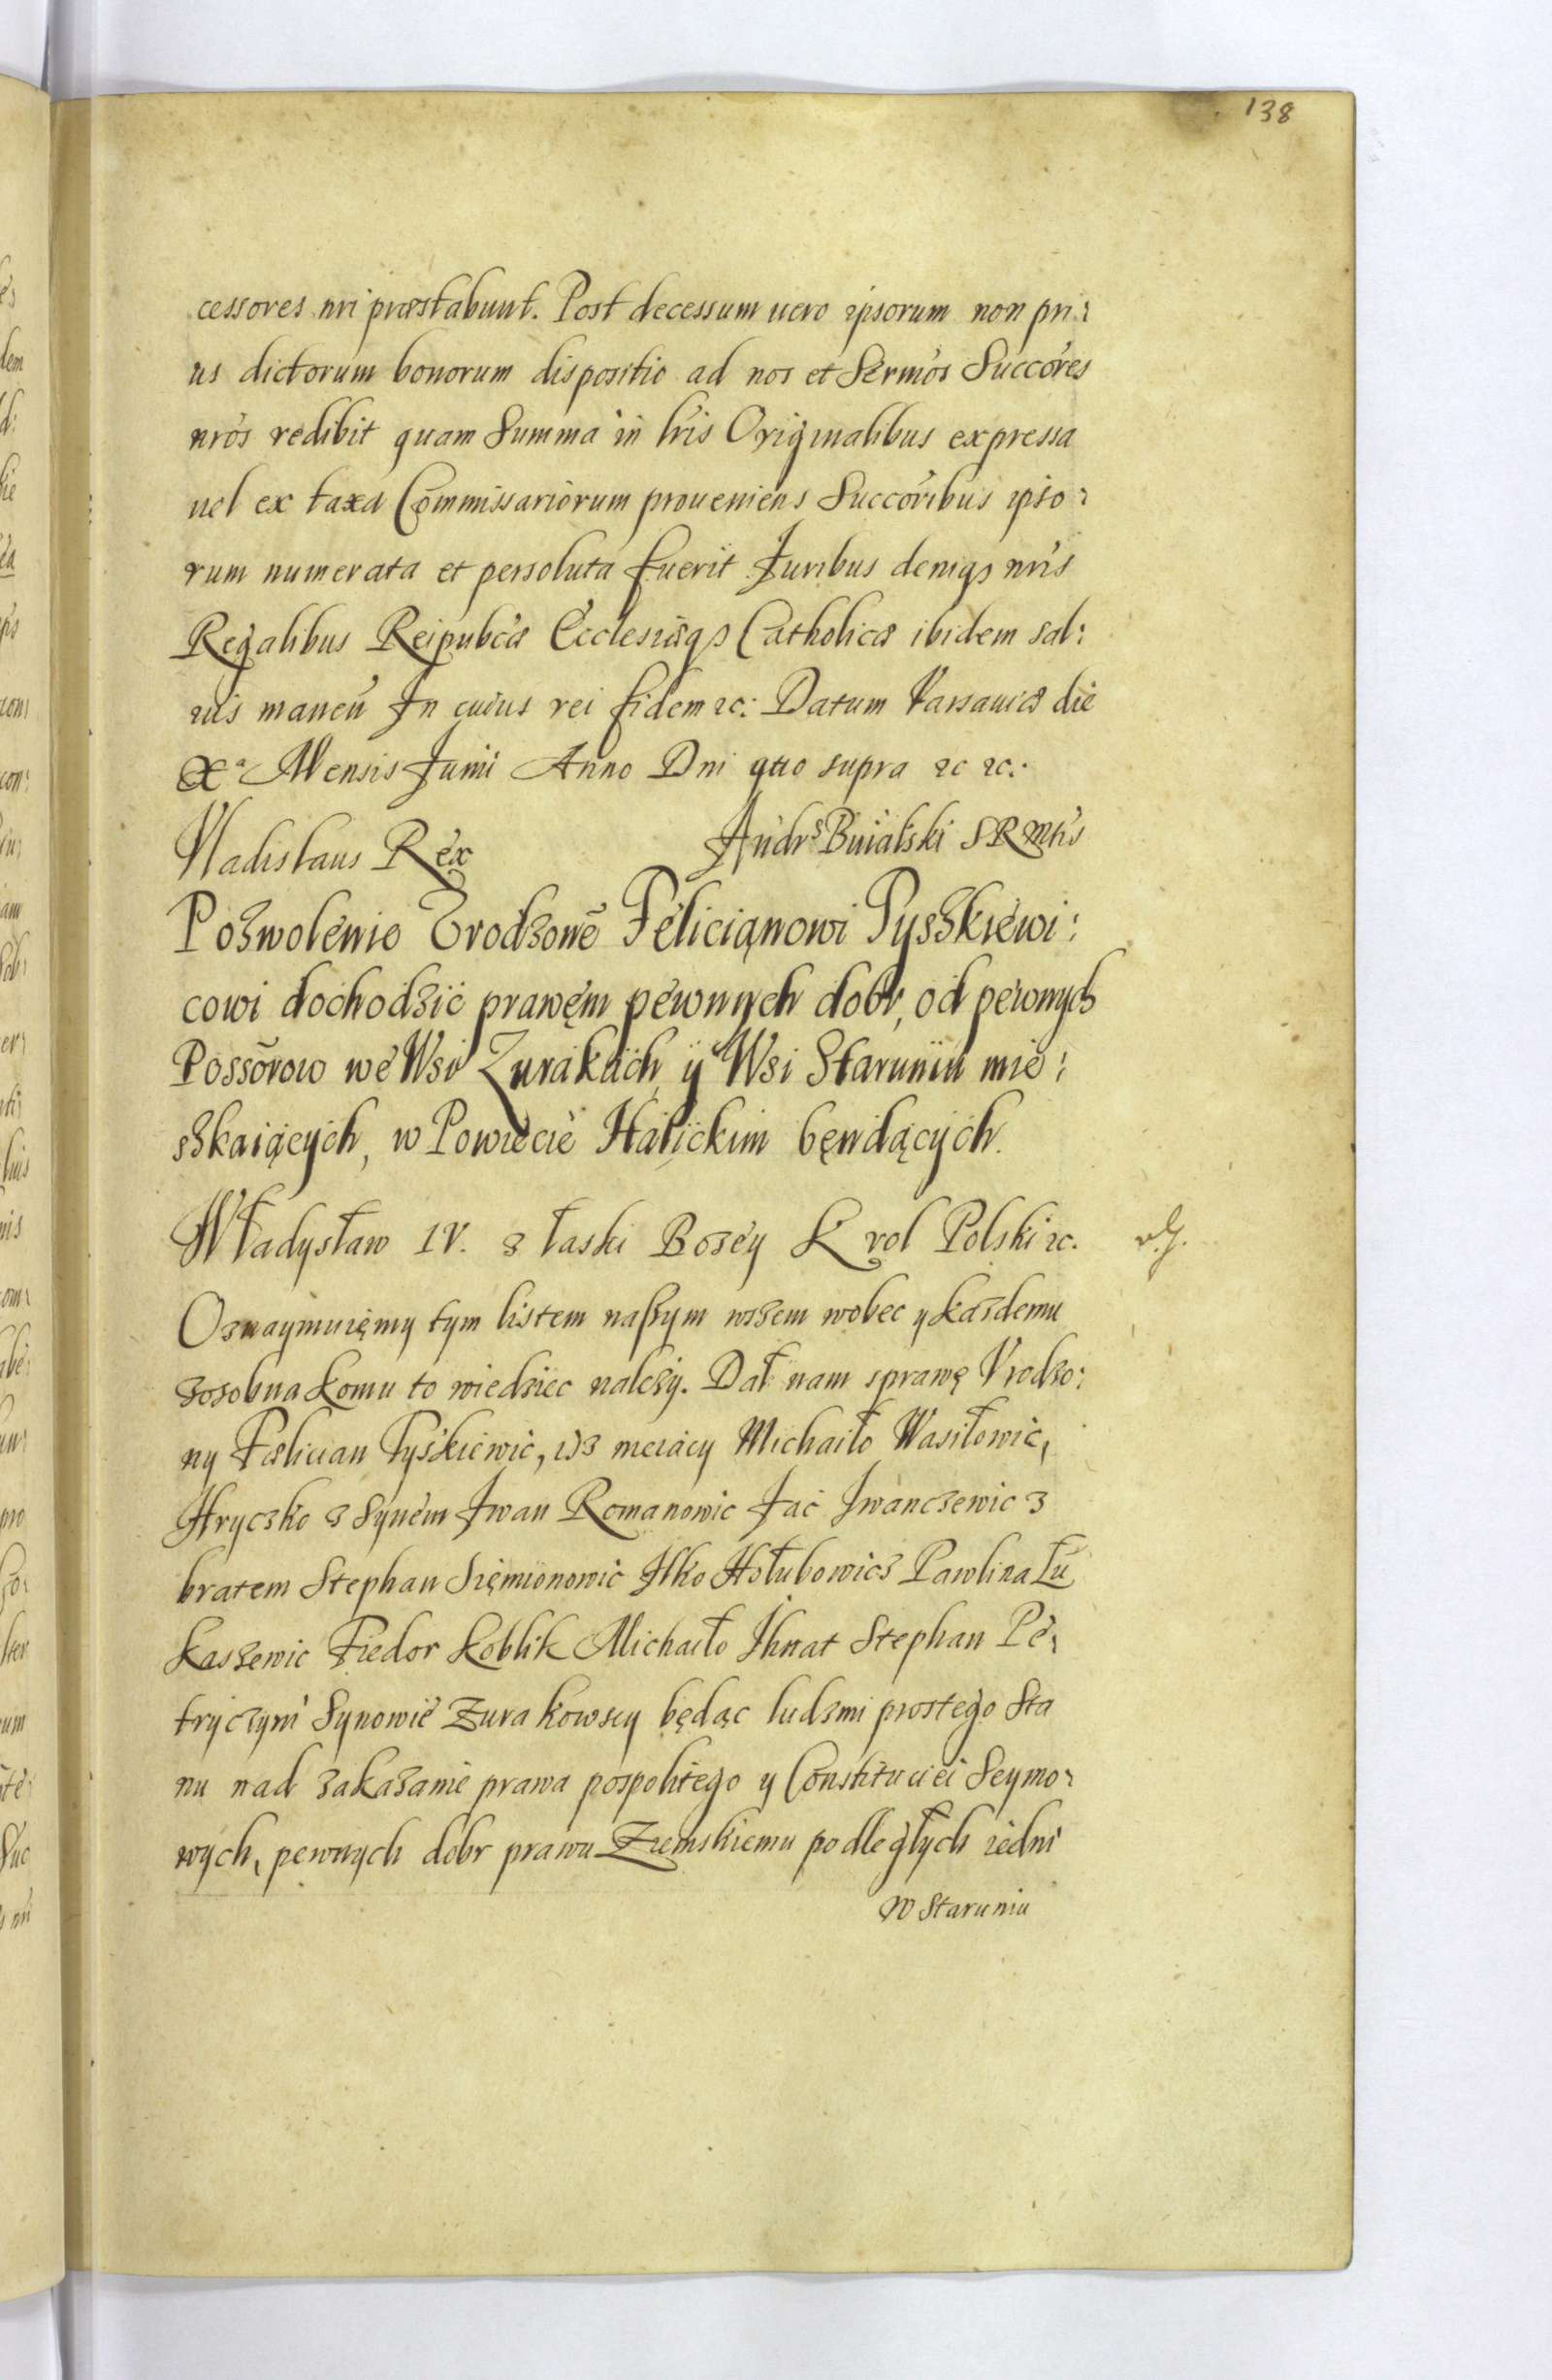 138
cessores nri præstabunt. Post decessum uero ipsorum non pri:
us dictorum bonorum dispositio ad nos et Sermos Succores
nros redibit quam Summa in lris Originalibus expressa
uel ex taxa Commissariorum proueniens Succoribus ipso:
rum numerata et persoluta fuerit Juribus deniqȝ nris
Regalibus Reipubcæ Ecclesiæqȝ Catholicæ ibidem sal:
uis maneñ In cuius rei fidem ꝛc: Datum Varsauiæ die
Xª Mensis Junii Anno Dni quo supra ꝛc ꝛc:
Vladislaus Rex Andrˢ Buialski SRMtis
Pozwolenie Vrodzonē Felicianowi Tysskiewi:
cowi dochodzić prawęm pewnych dobr, od pewnych
Possõrow we Wsi Zurakach, y Wsi Staruniu mie:
szkaiących, w Powiecie Halickim będących.
Władysław IV. z łaski Bozey Krol Polski ꝛc.
Oznaymuięmy tym listem naszym wszem wobec y kazdemu
zosobna komu to wiedziec nalezy. Dał nam sprawę Vrodzo:
ny Fælician Tyskiewic, isz meiacy Michaiło Wasiłowic,
Hryczko z Synem Iwan Romanowic Jać Iwanczewic z
bratem Stephan Sięmionowic Ilko Hołubowicz Pawlina Łu
kaszewic Fiedor Koblik Michaiło Ihnat Stephan Pe:
tryczyni Synowie Zurakowscy będąc ludzmi prostego Sta
nu nad zakazanie prawa pospolitego y Constituciei Seymo:
wych, pewnych dobr prawu Ziemskiemu podległych iedni
w Staruniu